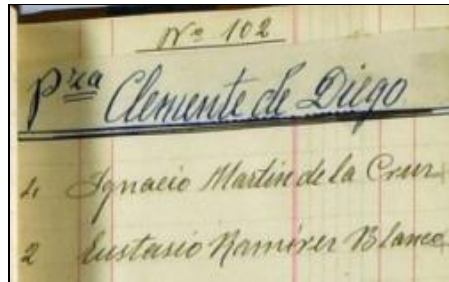 Nº 102
Pza Clemente de Diego
4 Ignacio Martin de la Cruz
2 Eustasio Ramírez Blanco